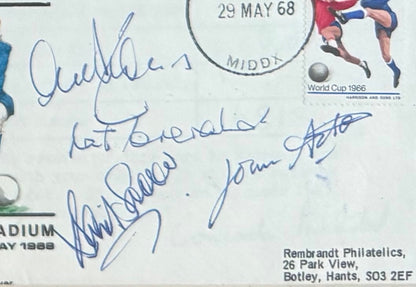 29 MAY 68
MIDDX
World Cup 1966
HARRISON AND SONS LTD
Pat Crerand
John Aston
ADIUM
AY 1968
Rembrandt Philatelics,
26 Park View,
Botley, Hants, SO3 2EF